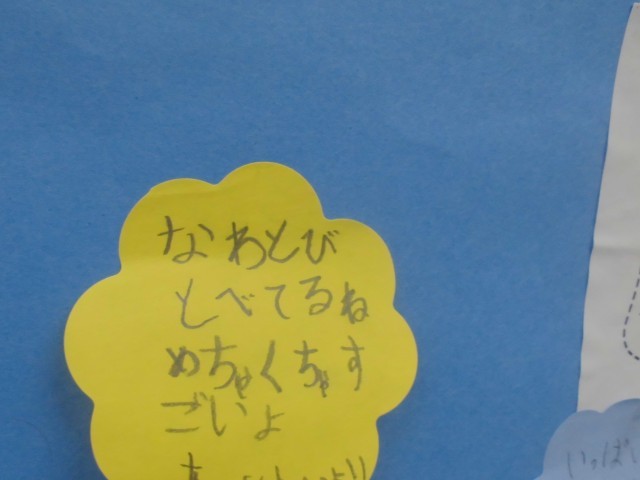 なわとび
とべてるね
めちゃくちゃす
ごいよ
いっぱい